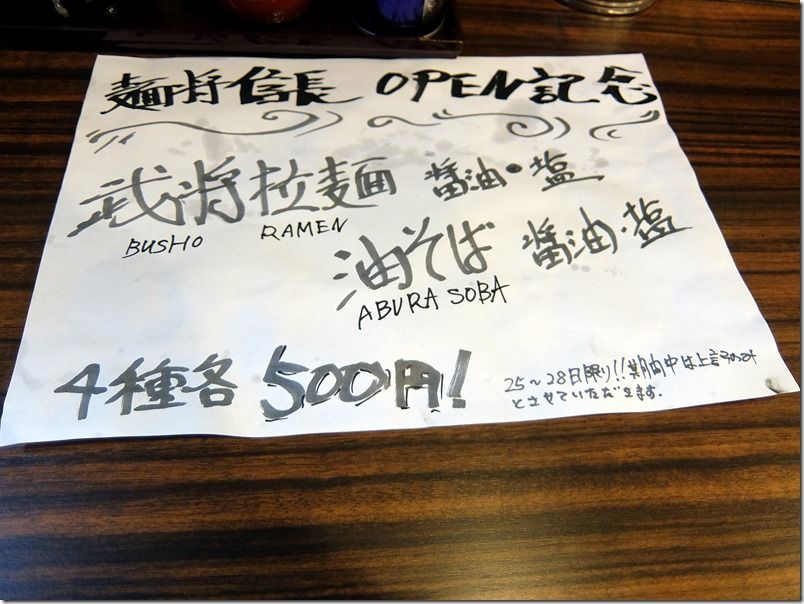 麺将信長 OPEN記念
武将拉麺 醤油・塩
BUSHO RAMEN
油そば 醤油・塩
ABURA SOBA
4種各 500円!
25～28日限り!!期間中は上記のみ
とさせていただきます.